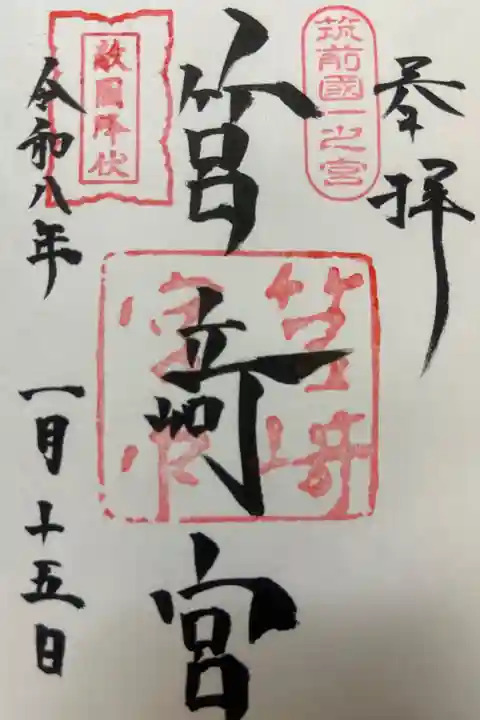 奉拝
筑前國一之宮
筥崎宮
敵國降伏
令和八年 一月十五日